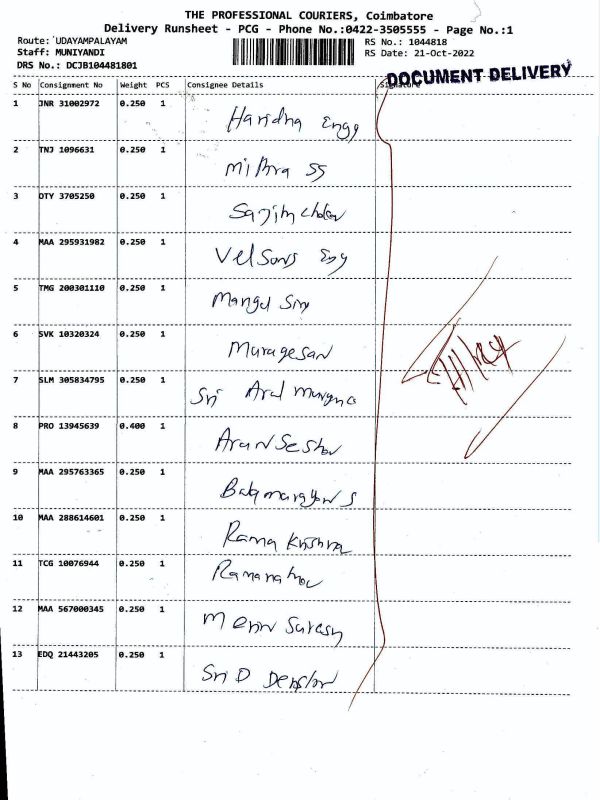 THE PROFESSIONAL COURIERS, Coimbatore
Delivery Runsheet - PCG - Phone No.:0422-3505555 - Page No.:1
Route: UDAYAMPALAYAM RS No.: 1044818
Staff: MUNIYANDI RS Date: 21-Oct-2022
DRS No.: DCJB104481801
DOCUMENT DELIVERY
S No Consignment No Weight PCS Consignee Details Signature
1 JNR 31002972 0.250 1 Haridha Engg
2 TNJ 1096631 0.250 1 Mithra SS
3 OTY 3705250 0.250 1
4 MAA 295931982 0.250 1 Velsons Eng
5 TMG 200301110 0.250 1
6 SVK 10320324 0.250 1 Murugesan
7 SLM 305834795 0.250 1 Sri Arul
8 PRO 13945639 0.400 1 Arun
9 MAA 295763365 0.250 1
10 MAA 288614601 0.250 1 Rama Krishna
11 TCG 10076944 0.250 1
12 MAA 567000345 0.250 1
13 EDQ 21443205 0.250 1 Sri D